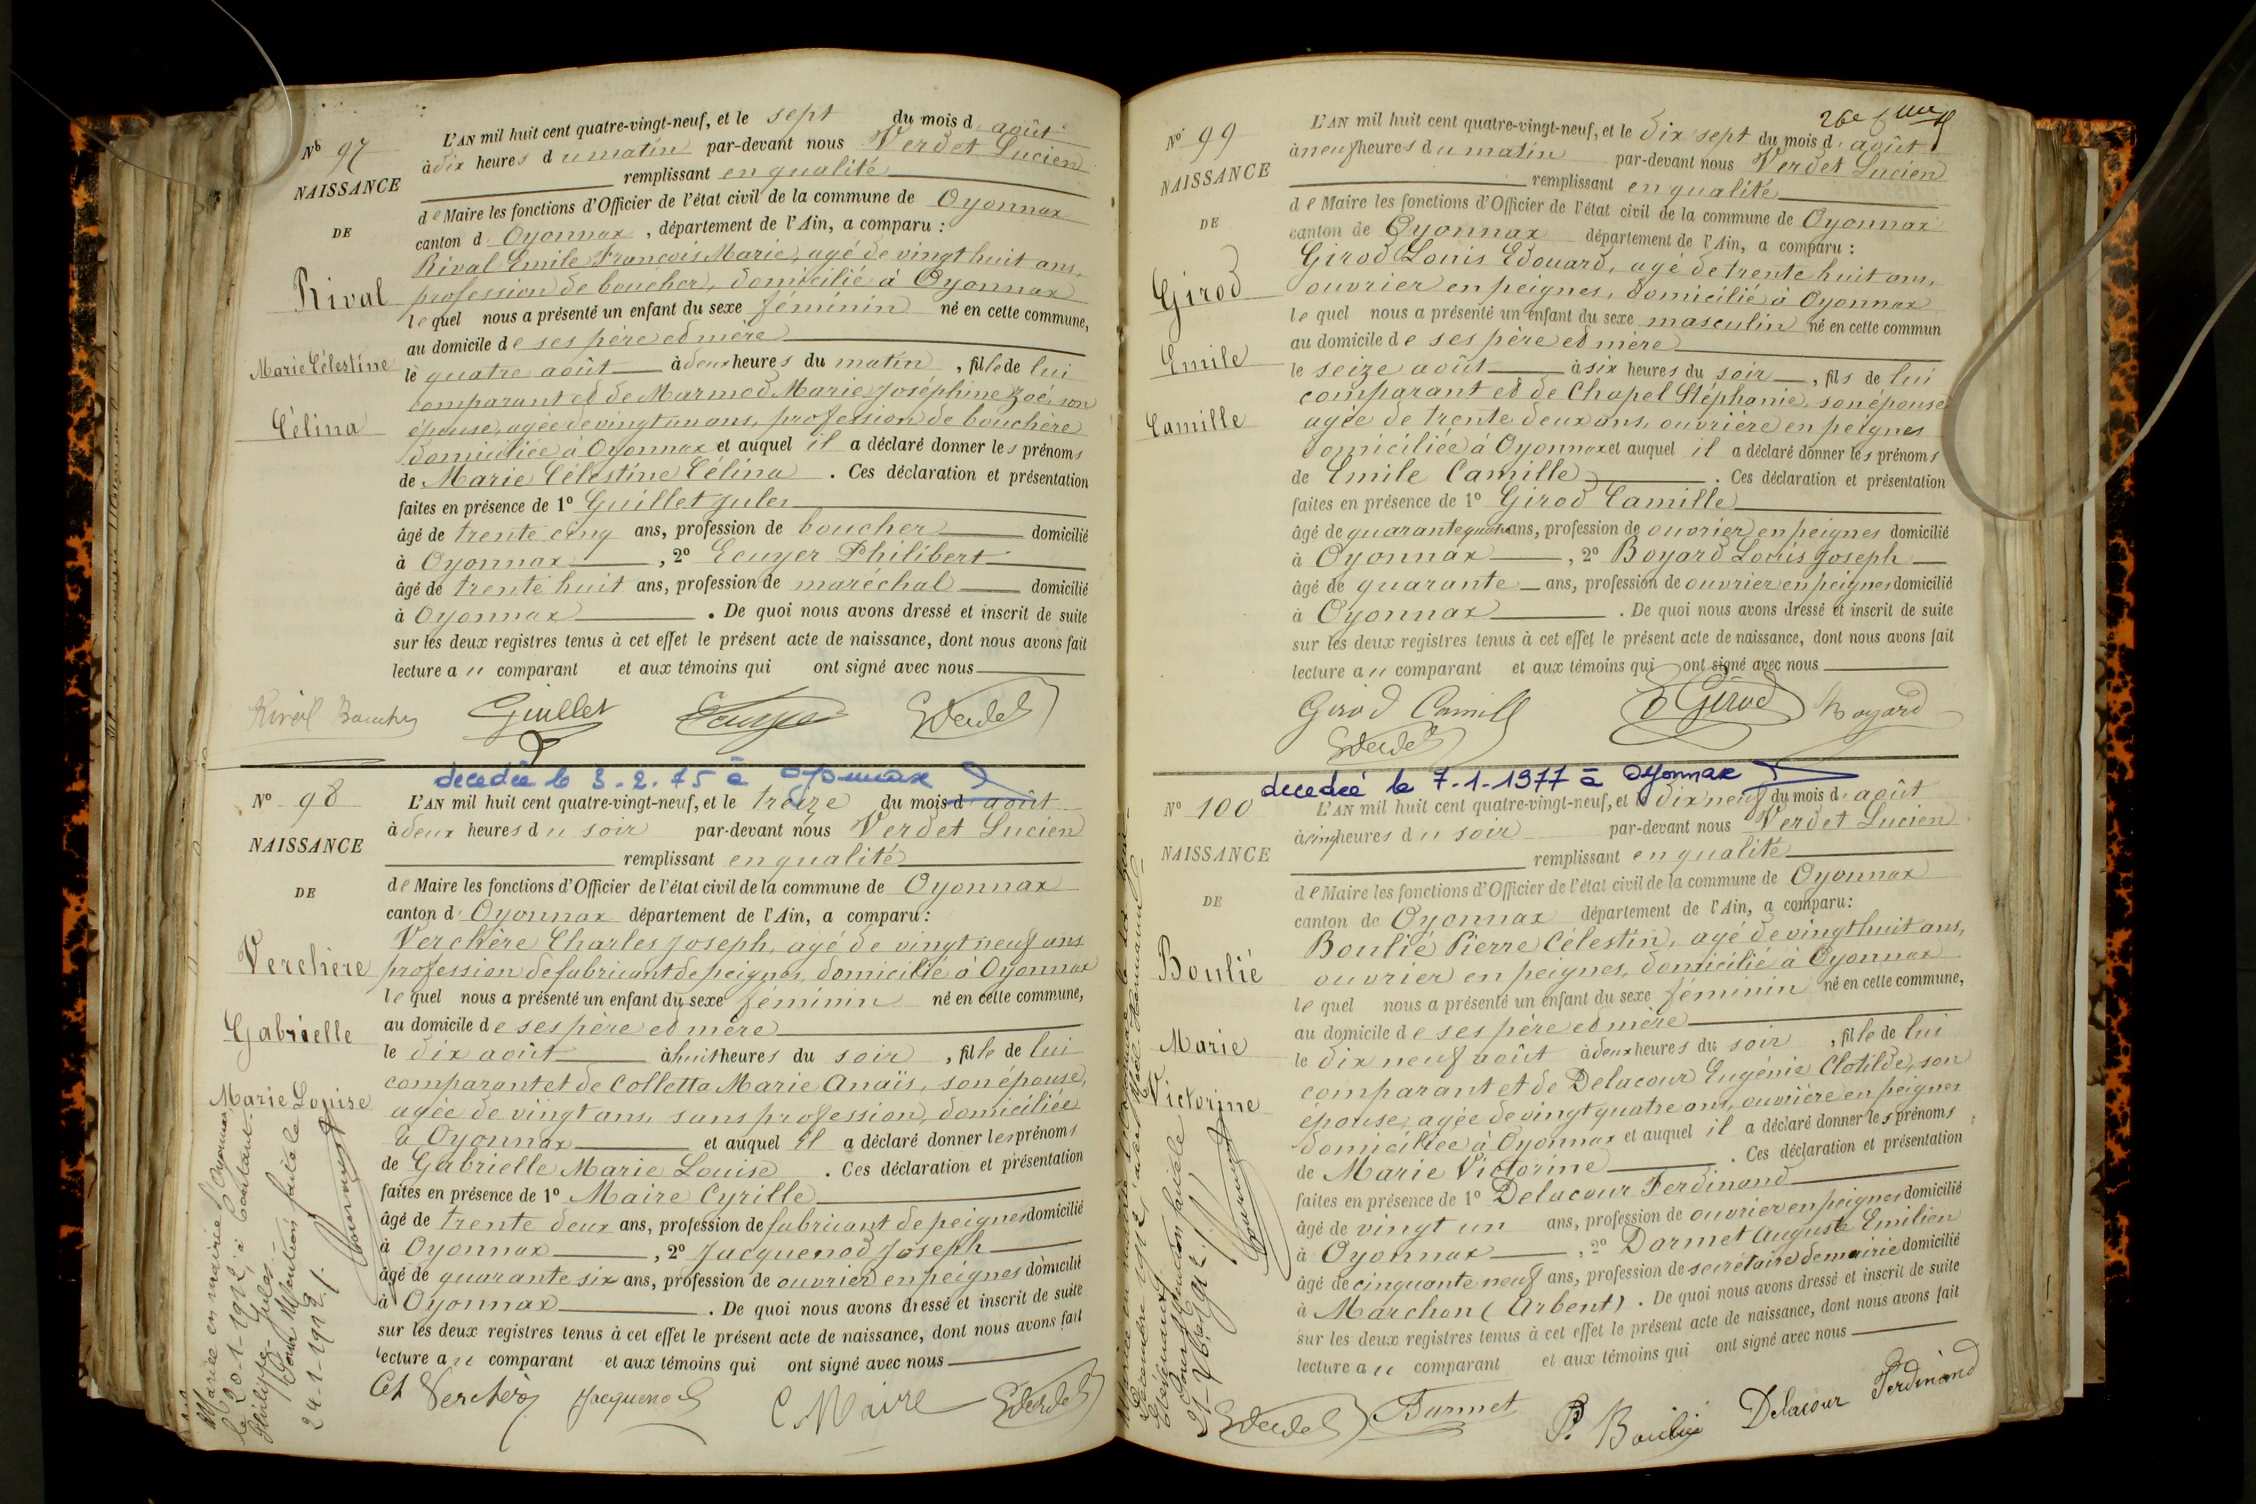 Nº 97
NAISSANCE
DE
Rival
Marie Célestine
Célina
L'AN mil huit cent quatre-vingt-neuf, et le sept du mois d' août
à dix heures du matin par-devant nous Verdet Lucien
remplissant en qualité
de Maire les fonctions d'Officier de l'état civil de la commune de Oyonnax
canton d' Oyonnax, département de l'Ain, a comparu :
Rival Emile François Marie, agé de vingt huit ans,
profession de boucher, domicilié à Oyonnax
lequel nous a présenté un enfant du sexe féminin né en cette commune,
au domicile de ses père et mère
le quatre août à deux heures du matin, fille de lui
comparant et de Marmod Marie Joséphine Zoé, son
épouse, agée de vingt un ans, profession de bouchère
domiciliée à Oyonnax et auquel il a déclaré donner les prénoms
de Marie Célestine Célina. Ces déclaration et présentation
faites en présence de 1º Guillet Jules
âgé de trente cinq ans, profession de boucher domicilié
à Oyonnax, 2º Ecuyer Philibert
âgé de trente huit ans, profession de maréchal domicilié
à Oyonnax. De quoi nous avons dressé et inscrit de suite
sur les deux registres tenus à cet effet le présent acte de naissance, dont nous avons fait
lecture au comparant et aux témoins qui ont signé avec nous
Guillet
decedée le 3.2.75 à Oyonnax
Nº 98
NAISSANCE
DE
Verchère
Gabrielle
Marie Louise
L'AN mil huit cent quatre-vingt-neuf, et le treize du mois d' août
à deux heures du soir par-devant nous Verdet Lucien
remplissant en qualité
de Maire les fonctions d'Officier de l'état civil de la commune de Oyonnax
canton d' Oyonnax département de l'Ain, a comparu :
Verchère Charles Joseph, agé de vingt neuf ans
profession de fabricant de peignes, domicilié à Oyonnax
lequel nous a présenté un enfant du sexe féminin né en cette commune,
au domicile de ses père et mère
le dix août à huit heures du soir, fille de lui
comparant et de Colletta Marie Anaïs, son épouse,
agée de vingt ans, sans profession, domiciliée
à Oyonnax et auquel il a déclaré donner les prénoms
de Gabrielle Marie Louise. Ces déclaration et présentation
faites en présence de 1º Maire Cyrille
âgé de trente deux ans, profession de fabricant de peignes domicilié
à Oyonnax, 2º Jacquenod Joseph
âgé de quarante six ans, profession de ouvrier en peignes domicilié
à Oyonnax. De quoi nous avons dressé et inscrit de suite
sur les deux registres tenus à cet effet le présent acte de naissance, dont nous avons fait
lecture au comparant et aux témoins qui ont signé avec nous
Ch Verchère Jacquenod C. Maire
Mariée en mairie d'Oyonnax
le 20-1-1912, à
Pour Mention faite le
24-1-1912
Nº 99
NAISSANCE
DE
Girod
Emile
Camille
L'AN mil huit cent quatre-vingt-neuf, et le dix sept du mois d' août
à neuf heures du matin par-devant nous Verdet Lucien
remplissant en qualité
de Maire les fonctions d'Officier de l'état civil de la commune de Oyonnax
canton de Oyonnax département de l'Ain, a comparu :
Girod Louis Edouard, agé de trente huit ans,
ouvrier en peignes, domicilié à Oyonnax
lequel nous a présenté un enfant du sexe masculin né en cette commun
au domicile de ses père et mère
le seize août à six heures du soir, fils de lui
comparant et de Chapel Stéphanie, son épouse
agée de trente deux ans, ouvrière en peignes
domiciliée à Oyonnax et auquel il a déclaré donner les prénoms
de Emile Camille. Ces déclaration et présentation
faites en présence de 1º Girod Camille
âgé de quarante quatre ans, profession de ouvrier en peignes domicilié
à Oyonnax, 2º Boyard Louis Joseph
âgé de quarante ans, profession de ouvrier en peignes domicilié
à Oyonnax. De quoi nous avons dressé et inscrit de suite
sur les deux registres tenus à cet effet le présent acte de naissance, dont nous avons fait
lecture au comparant et aux témoins qui ont signé avec nous
Girod Camill Girod Boyard
decedeé le 7.1.1977 à Oyonnax
Nº 100
NAISSANCE
DE
Boulié
Marie
Victorine
L'AN mil huit cent quatre-vingt-neuf, et le dix neuf du mois d' août
à cinq heures du soir par-devant nous Verdet Lucien
remplissant en qualité
de Maire les fonctions d'Officier de l'état civil de la commune de Oyonnax
canton de Oyonnax département de l'Ain, a comparu :
Boulié Pierre Célestin, agé de vingt huit ans,
ouvrier en peignes, domicilié à Oyonnax
lequel nous a présenté un enfant du sexe féminin né en cette commune,
au domicile de ses père et mère
le dix neuf août à deux heures du soir, fille de lui
comparant et de Delacour Eugénie Clotilde, son
épouse, agée de vingt quatre ans, ouvrière en peignes
domiciliée à Oyonnax et auquel il a déclaré donner les prénoms
de Marie Victorine. Ces déclaration et présentation
faites en présence de 1º Delacour Ferdinand
âgé de vingt un ans, profession de ouvrier en peignes domicilié
à Oyonnax, 2º Dormet Auguste Emilien
âgé de cinquante neuf ans, profession de secrétaire de mairie domicilié
à Marchon (Arbent). De quoi nous avons dressé et inscrit de suite
sur les deux registres tenus à cet effet le présent acte de naissance, dont nous avons fait
lecture au comparant et aux témoins qui ont signé avec nous
P. Boulié Delacour Ferdinand